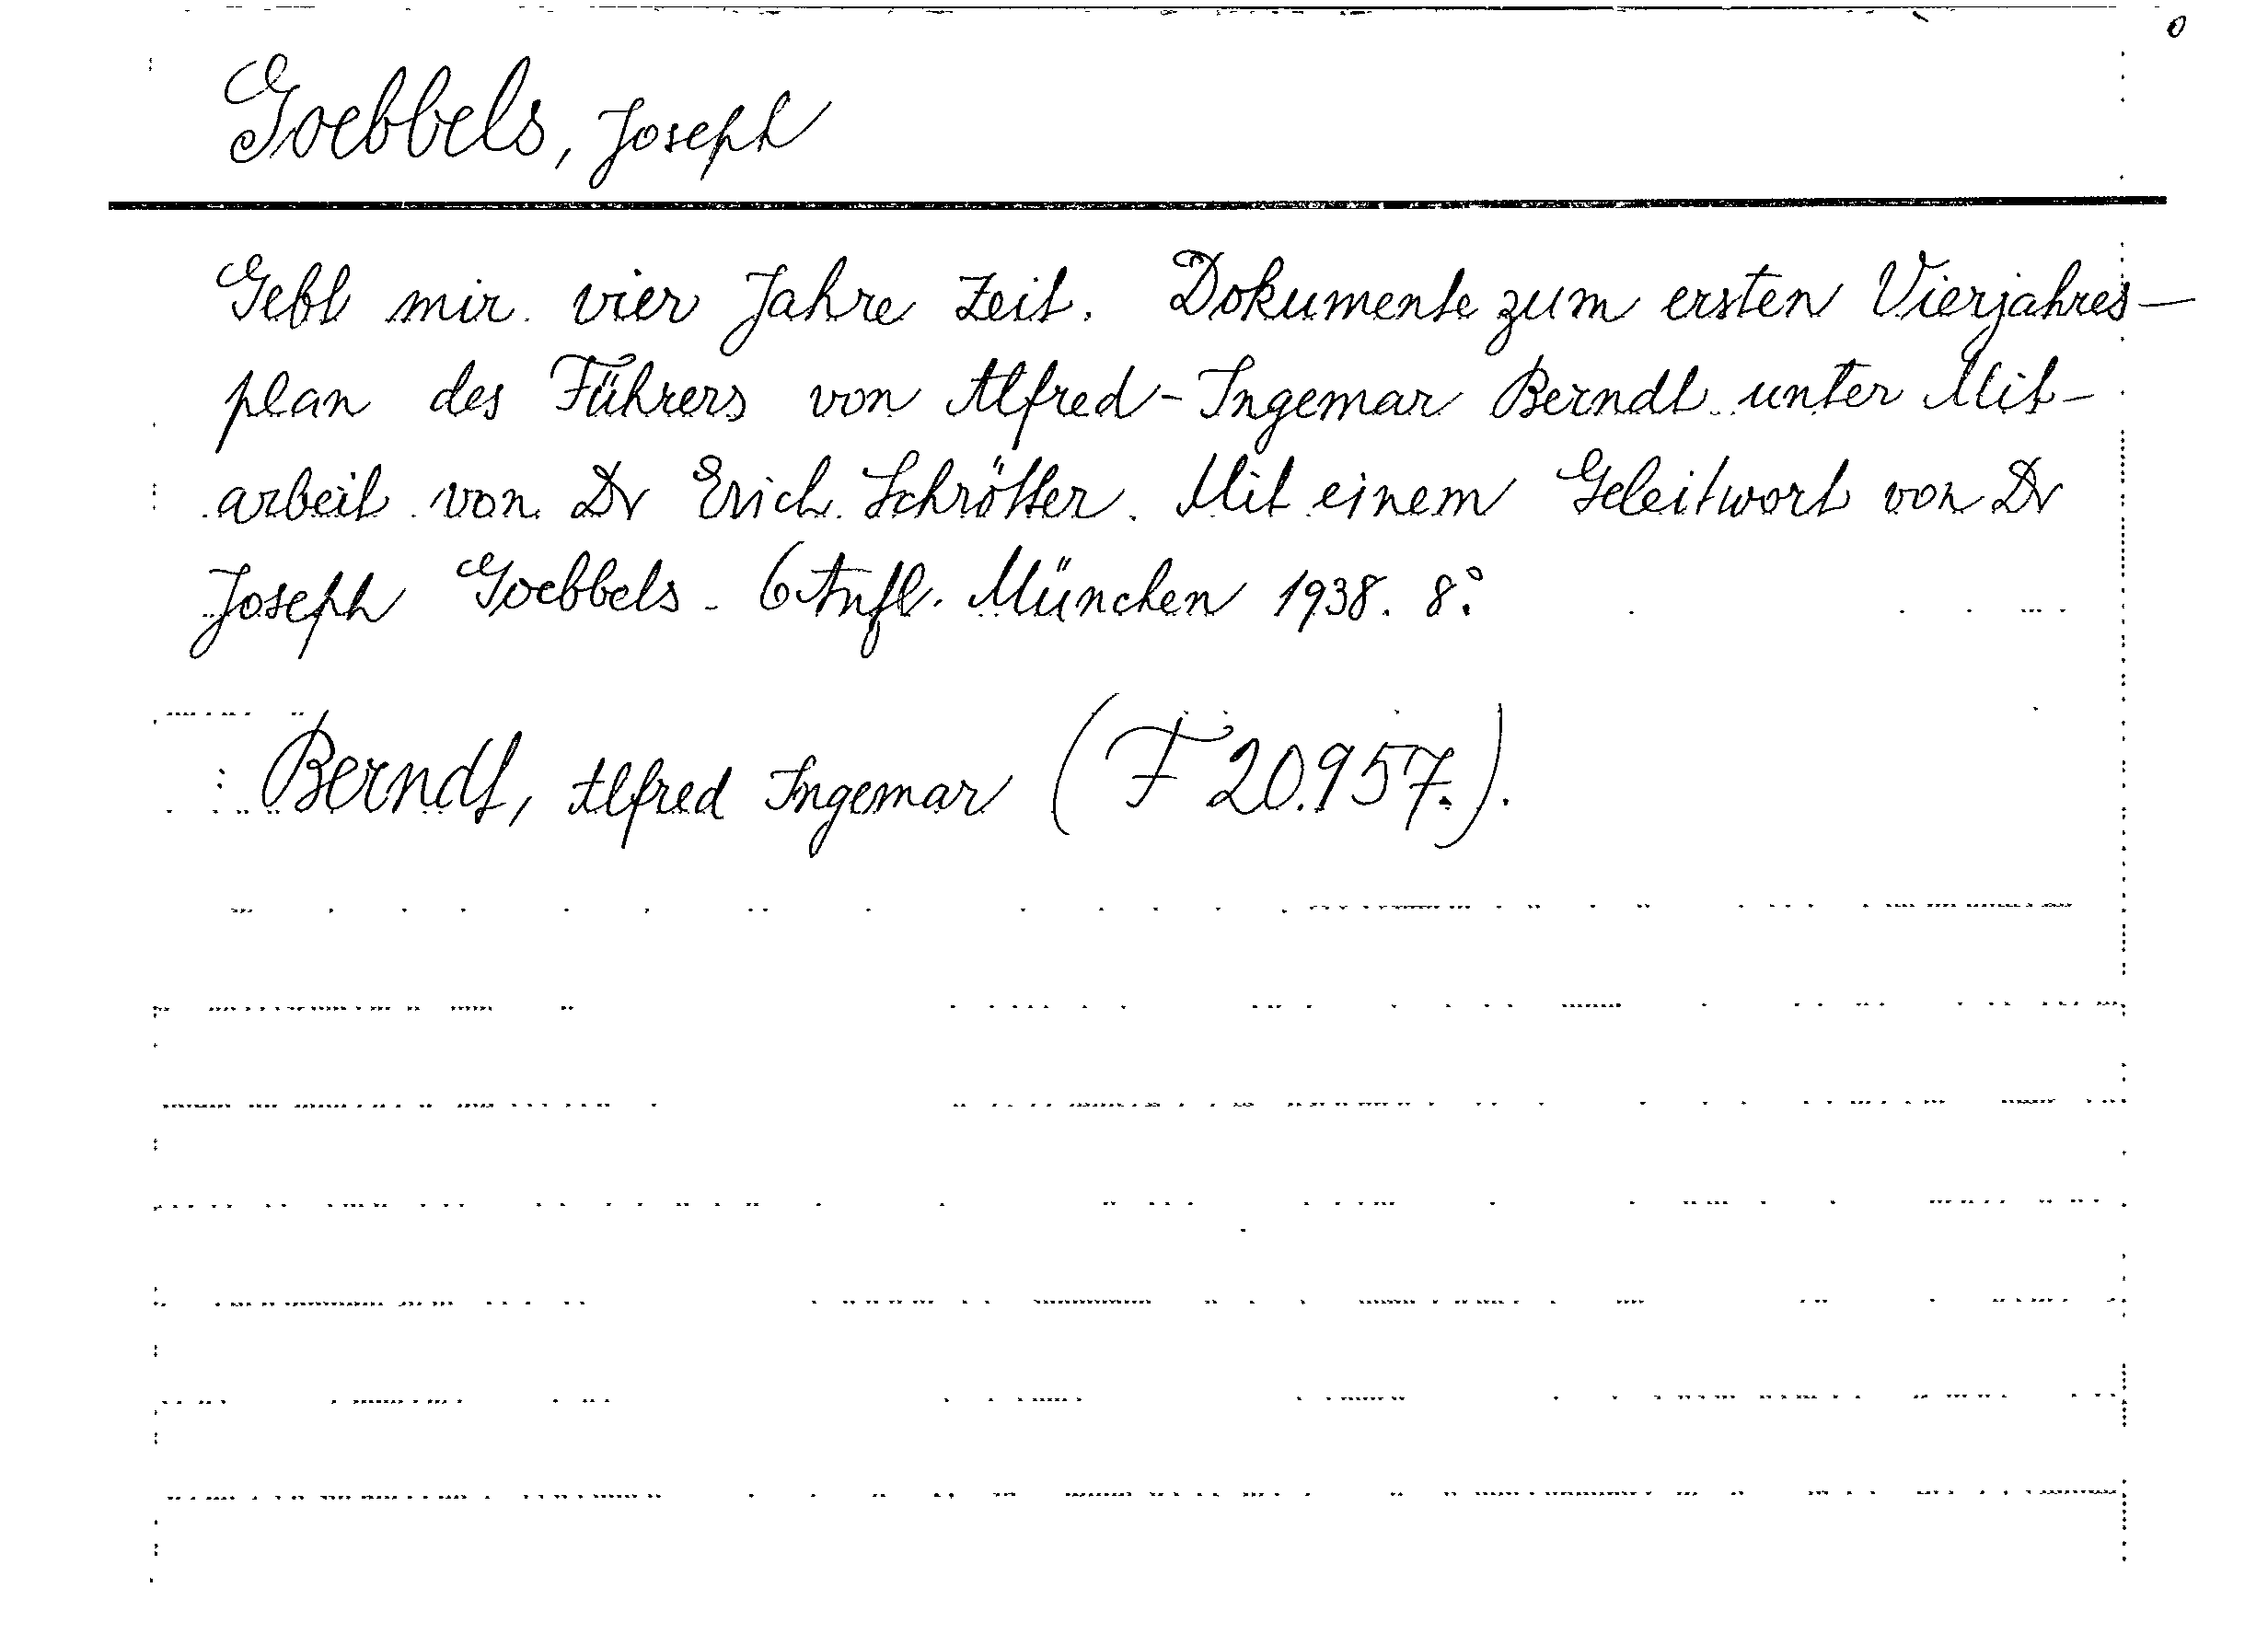 Goebbels, Joseph
Gebt mir vier Jahre Zeit. Dokumente zum ersten Vierjahres-
plan des Führers von Alfred-Ingemar Berndt unter Mit-
arbeit von Dr Erich Schrötter. Mit einem Geleitwort von Dr
Joseph Goebbels. 6 Aufl. München 1938. 8°.
Berndt, Alfred Ingemar (F 20.957.).